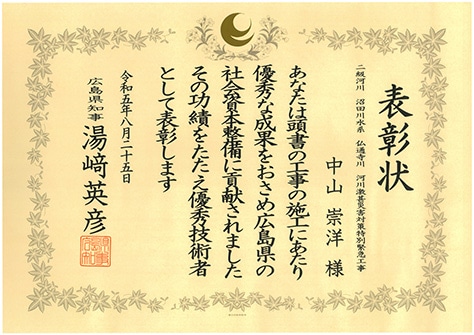 表彰状
二級河川 沼田川水系 仏通寺川 河川激甚災害対策特別緊急工事
中山 崇洋 様
あなたは頭書の工事の施工にあたり
優秀な成果をおさめ広島県の
社会資本整備に貢献されました
その功績をたたえ優秀技術者
として表彰します
令和五年八月二十五日
広島県知事 湯﨑英彦